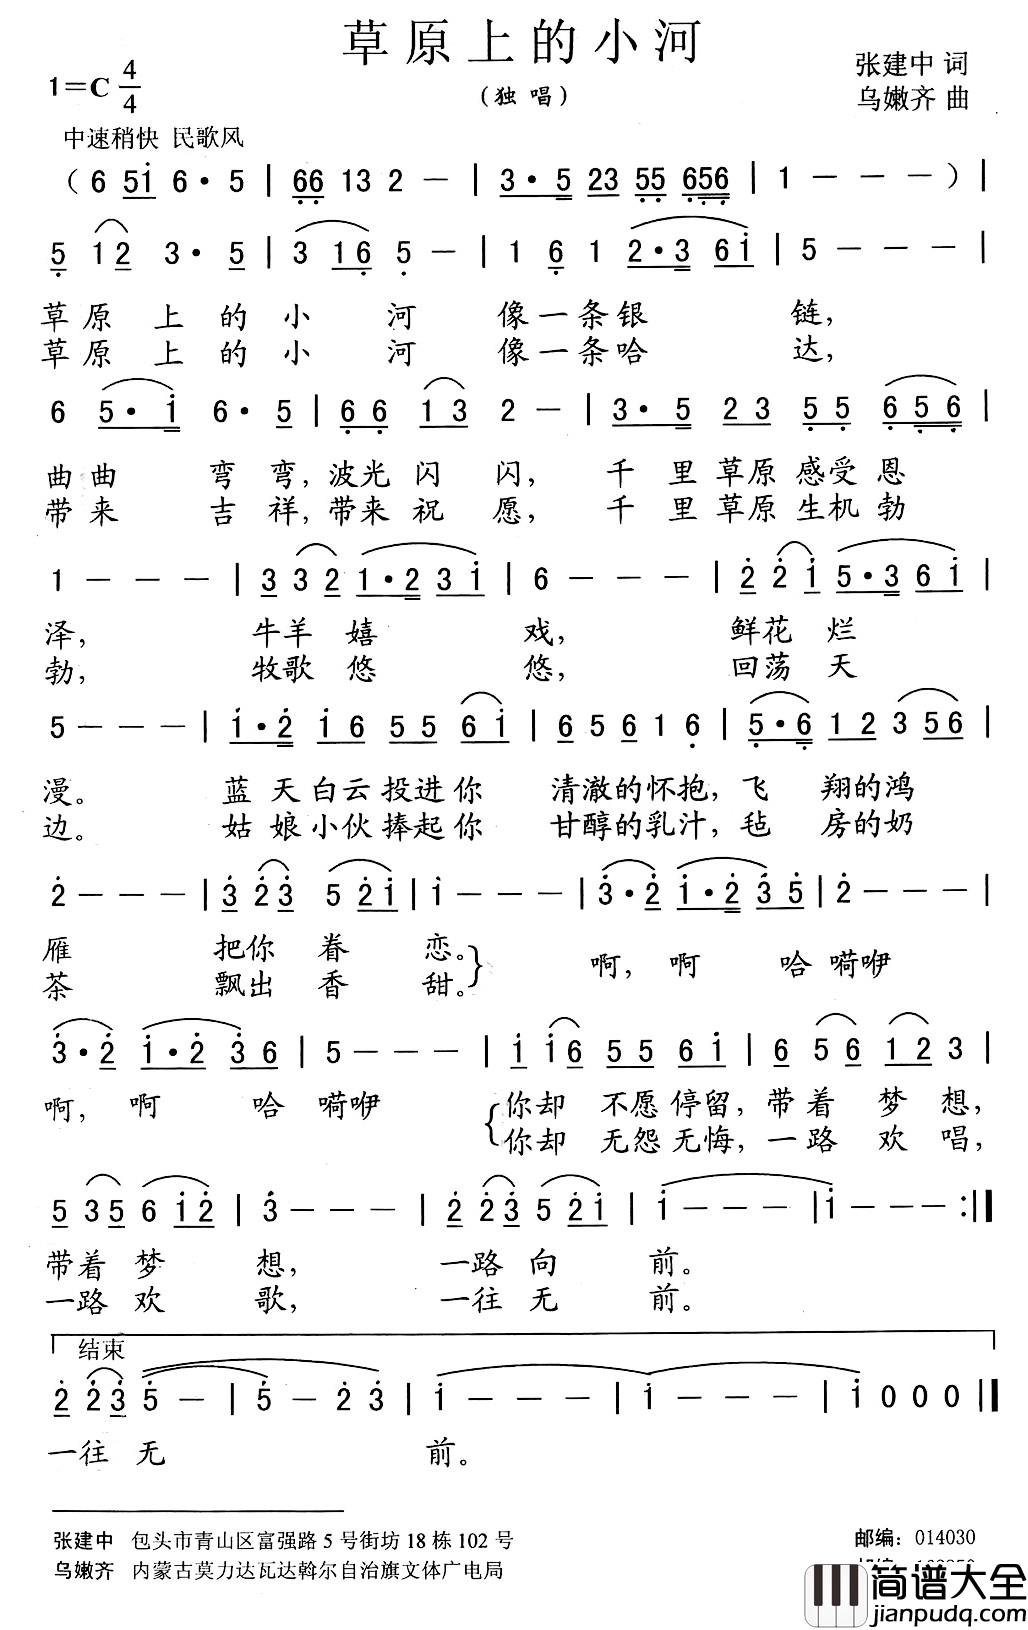 草原上的小河
1=C 4/4
（独唱）
张建中 词
乌嫩齐 曲
中速稍快 民歌风
（6 5i 6· 5 | 66 13 2 － | 3·5 23 55 656 | 1 － － － ）|
5 12 3· 5 | 3 16 5 － | 1 6 1 2·3 6i | 5 － － － |
草原 上的小 河 像一条银 链，
草原 上的小 河 像一条哈 达，
6 5·i 6· 5 | 66 13 2 － | 3·5 23 55 656 |
曲曲 弯弯，波光闪闪，千里草原感受恩
带来 吉祥，带来祝愿，千里草原生机勃
1 － － － | 3 3 2 1·2 3i | 6 － － － | 2 2 i 5·3 6i |
泽， 牛羊嬉 戏， 鲜花烂
勃， 牧歌悠 悠， 回荡天
5 － － － | i·2 i6 55 6i | 6 5 6 1 6 | 5·6 12 3 56 |
漫。 蓝天白云投进你 清澈的怀抱，飞 翔的鸿
边。 姑娘小伙捧起你 甘醇的乳汁，毡 房的奶
2 － － － | 3 2 3 5 2i | i － － － | 3·2 i·2 35 | 2 － － － |
雁 把你眷 恋。} 啊，啊 哈嗬咿
茶 飘出香 甜。
3·2 i·2 36 | 5 － － － | i i6 55 6i | 6 5 6 12 3 |
啊，啊 哈 嗬咿 {你却 不愿停留，带着 梦 想，
你却 无怨无悔，一路 欢 唱，
5 3 5 6 i2 | 3 － － － | 2 2 3 5 2i | i － － － | i － － － :||
带着 梦 想， 一路向 前。
一路欢 歌， 一往无 前。
结束
2 2 3 5 － | 5 － 2 3 | i － － － | i － － － | i 0 0 0 ||
一往 无 前。
张建中 包头市青山区富强路5号街坊18栋102号 邮编：014030
乌嫩齐 内蒙古莫力达瓦达斡尔自治旗文体广电局
简谱大全
jianpudq.com